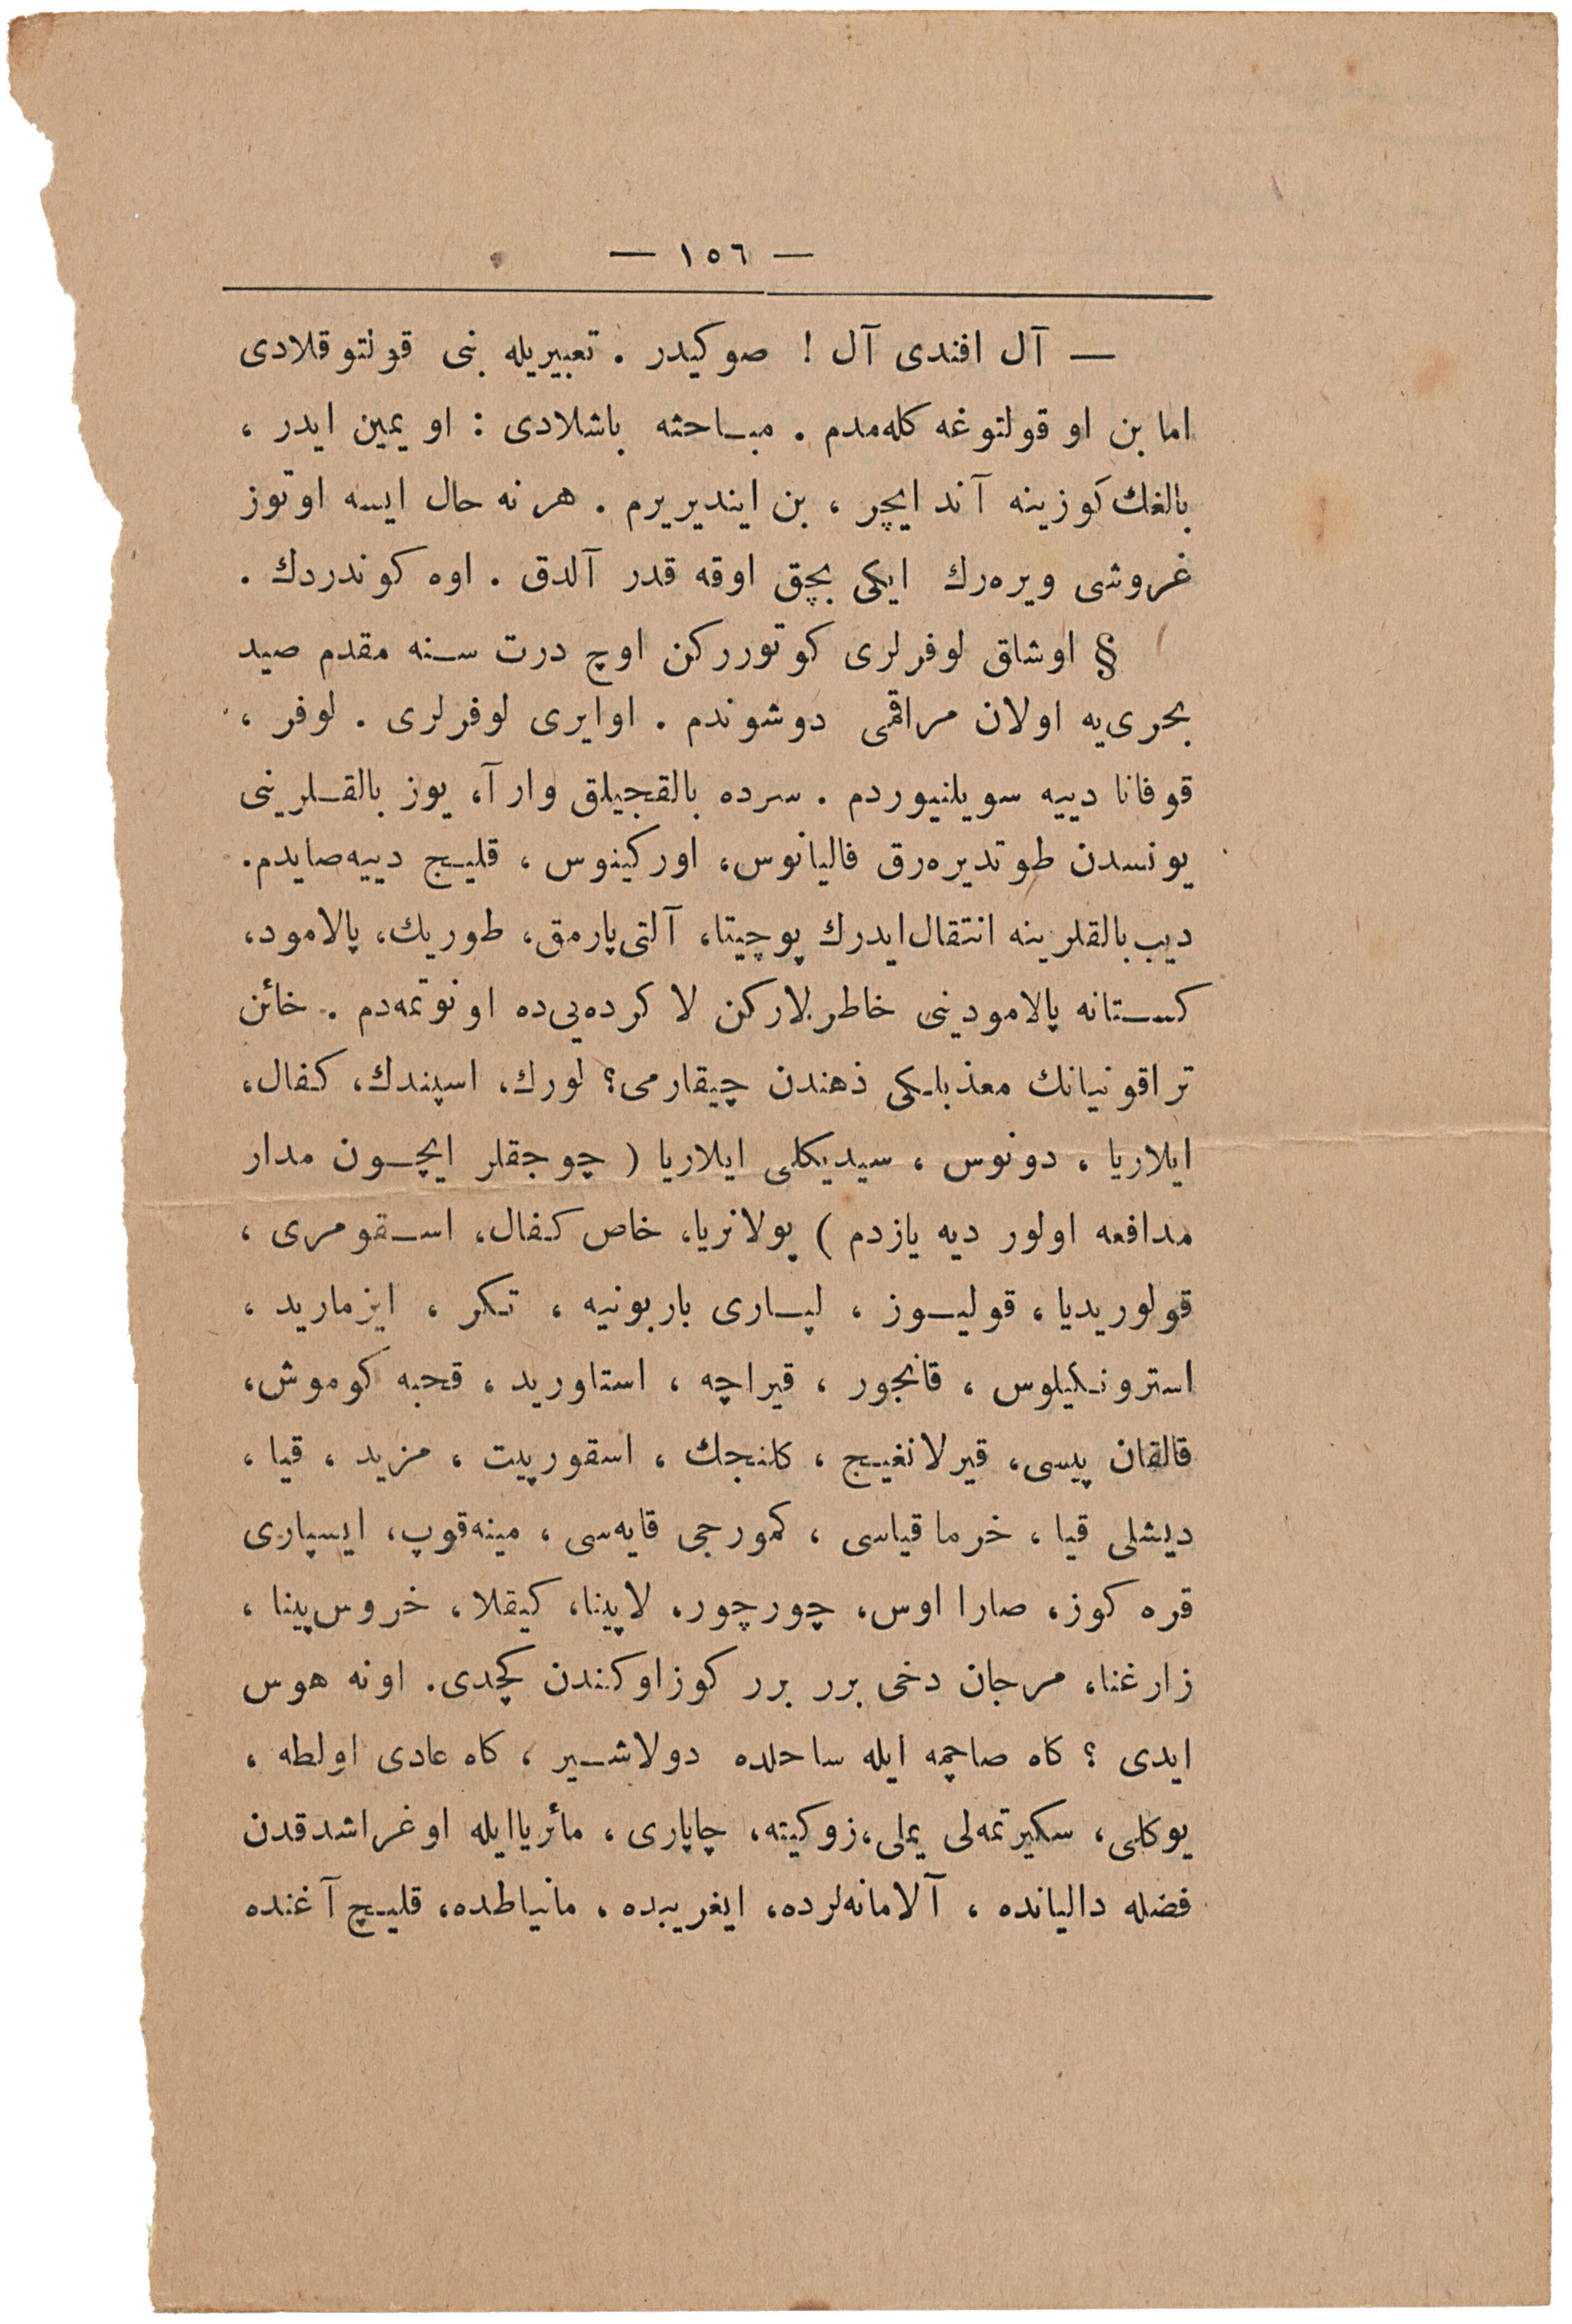 — ١٥٦ —
— آل افندی آل ! صوكیدر . تعبیریله بنی قولتوقلادی
اما بن او قولتوغه كله‌مدم . مباحثه باشلادی : او یمین ایدر ،
بالغك كوزینه آند ایچر ، بن ایندیریرم . هر نه حال ایسه اوتوز
غروشی ویره‌رك ایكی بچق اوقه قدر آلدق . اوه كوندردك .
§ اوشاق لوفرلری كوتورركن اوچ درت سنه مقدم صید
بحری‌یه اولان مراقمی دوشوندم . اوایری لوفرلری . لوفر ،
قوفانا دییه سویلنیوردم . سرده بالقجیلق وارآ، یوز بالقلرینی
یونسدن طوتدیره‌رق فالیانوس، اوركینوس ، قلیج دییه‌صایدم.
دیب‌بالقلرینه انتقال‌ایدرك پوچیتا، آلتی‌پارمق، طوریك، پالامود،
كستانه پالامودینی خاطرلاركن لاكرده‌یی‌ده اونوتمه‌دم . خائن
تراقونیانك معذبلكی ذهندن چیقارمی؟ لورك، اسپندك، كفال،
ایلاریا ، دونوس ، سیدیكلی ایلاریا ( چوجقلر ایچون مدار
مدافعه اولور دیه یازدم ) پولانریا، خاص كفال، اسقومری ،
قولوریدیا ، قولیوز ، لپاری باربونیه ، تكر ، ایزمارید ،
استرونكیلوس ، قانجور ، قیراچه ، استاورید ، قحبه كوموش،
قالقان پیسی، قیرلانغیج ، كلنجك ، اسقورپیت ، مزید ، قیا ،
دیشلی قیا ، خرما قیاسی ، كمورجی قایه‌سی ، مینه‌قوپ، ایسپاری
قره كوز، صارا اوس، چورچور، لاپینا، كیقلا، خروس‌پینا ،
زارغنا، مرجان دخی برر برر كوزاوكندن كچدی. اونه هوس
ایدی ؟ كاه صاچمه ایله ساحلده دولاشیر ، كاه عادی اولطه ،
یوكلی، سكیرتمه‌لی یملی،زوكیته، چاپاری ، مائریاایله اوغراشدقدن
فضله دالیانده ، آلامانه‌لرده، ایغریبده ، مانیاطده، قلیچ آغنده